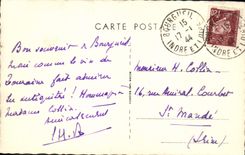 CARTE POSTALE
BOURGUEIL
15
17-1
44
INDRE ET LOIRE
Bon souvenir de Bourgueil
mais comme le vin de
Touraine fait admirer
les antiquités! Hommages
Madame Collin
amicalement
Monsieur H. Collin
16, rue Amiral Courbet
St Mandé
(Seine)